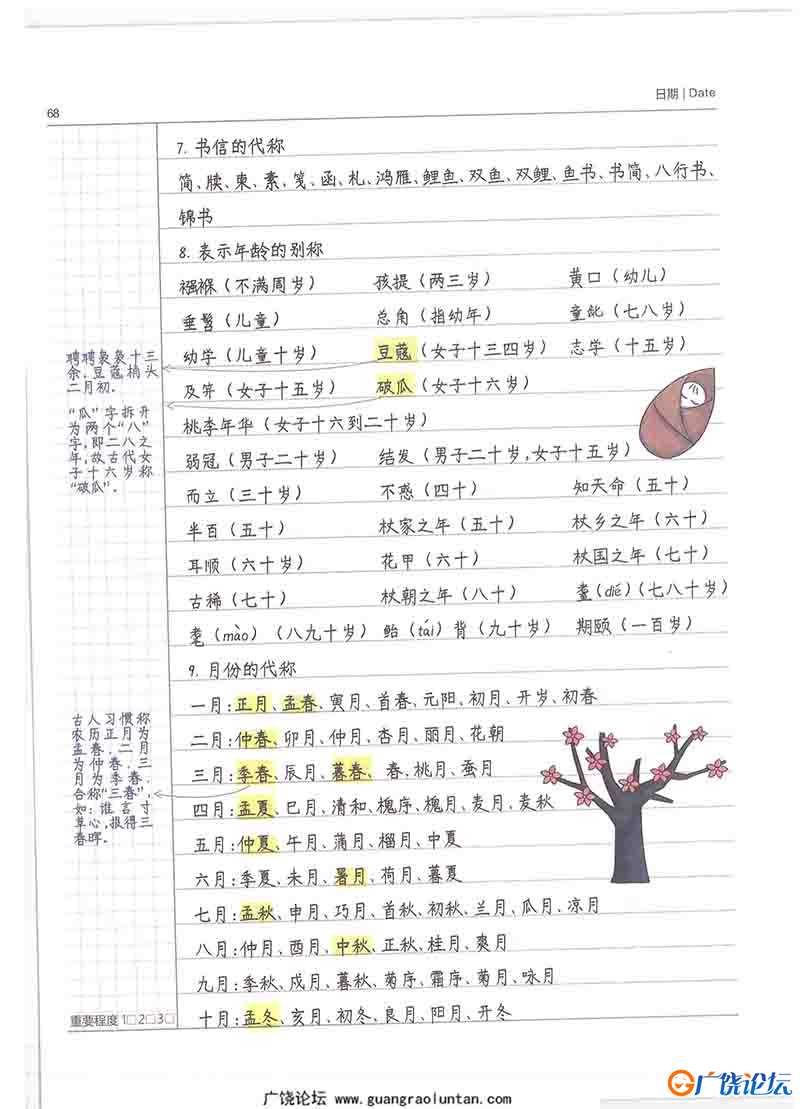 日期 | Date
68
7. 书信的代称
简、牍、柬、素、笺、函、札、鸿雁、鲤鱼、双鱼、双鲤、鱼书、书简、八行书、
锦书
8. 表示年龄的别称
襁褓（不满周岁） 孩提（两三岁） 黄口（幼儿）
垂髫（儿童） 总角（指幼年） 童龀（七八岁）
幼学（儿童十岁） 豆蔻（女子十三四岁） 志学（十五岁）
及笄（女子十五岁） 破瓜（女子十六岁）
桃李年华（女子十六到二十岁）
弱冠（男子二十岁） 结发（男子二十岁，女子十五岁）
而立（三十岁） 不惑（四十） 知天命（五十）
半百（五十） 杖家之年（五十） 杖乡之年（六十）
耳顺（六十岁） 花甲（六十） 杖国之年（七十）
古稀（七十） 杖朝之年（八十） 耋(dié)(七八十岁)
耄（mào）（八九十岁） 鲐（tái）背（九十岁） 期颐（一百岁）
9. 月份的代称
一月：正月、孟春、寅月、首春、元阳、初月、开岁、初春
二月：仲春、卯月、仲月、杏月、丽月、花朝
三月：季春、辰月、暮春、 春、桃月、蚕月
四月：孟夏、巳月、清和、槐序、槐月、麦月、麦秋
五月：仲夏、午月、蒲月、榴月、中夏
六月：季夏、未月、暑月、荷月、暮夏
七月：孟秋、申月、巧月、首秋、初秋、兰月、瓜月、凉月
八月：仲月、酉月、中秋、正秋、桂月、爽月
九月：季秋、戌月、暮秋、菊序、霜序、菊月、咏月
十月：孟冬、亥月、初冬、良月、阳月、开冬
娉娉袅袅十三
余，豆蔻梢头
二月初．
“瓜”字拆开
为两个“八”
字，即二八之
年，故古代女
子十六岁称
“破瓜”．
古人习惯称
农历正月为
孟春，二月
为仲春，三
月为季春，
合称“三春”，
如：谁言寸
草心，报得三
春晖．
重要程度 1□2□3□
广饶论坛
广饶论坛 www.guangraoluntan.com